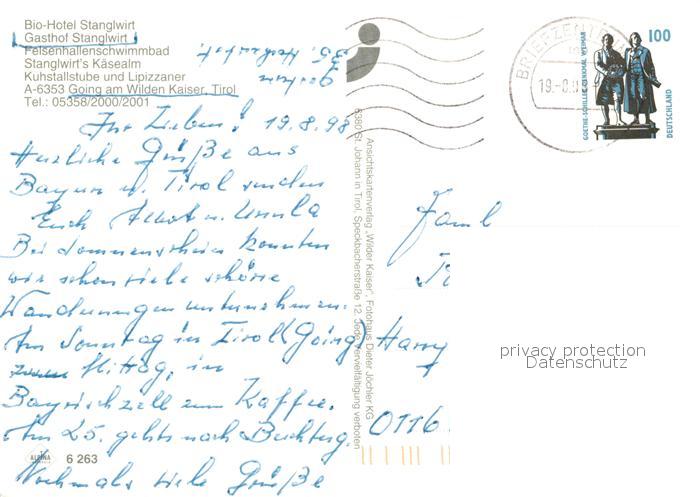 Bio-Hotel Stanglwirt
Gasthof Stanglwirt
Felsenhallenschwimmbad
Stanglwirt's Käsealm
Kuhstallstube und Lipizzaner
A-6353 Going am Wilden Kaiser, Tirol
Tel.: 05358/2000/2001
Gestern
35. Hochzeitst.
Ihr Lieben! 19.8.98
Herzliche Grüße aus
Bayern u. Tirol senden
Euch Albert u. Ursula
Bei Sonnenschein konnten
wir schon viele schöne
Wanderungen unternehmen.
Am Sonntag in Tirol (Going)
Mittag, in
Bayrischzell zum Kaffee.
Am 25. gehts nach
Nochmals viele Grüße
ALPINA
6 263
Ansichtskartenverlag „Wilder Kaiser", Fotohaus Dieter Jöchler KG
6380 St. Johann in Tirol, Speckbacherstraße 12. Jede Vervielfältigung verboten
BRIEFZENTRUM
19.-8.
GOETHE-SCHILLER-DENKMAL WEIMAR
100
DEUTSCHLAND
Faml
Harry
0116
privacy protection
Datenschutz